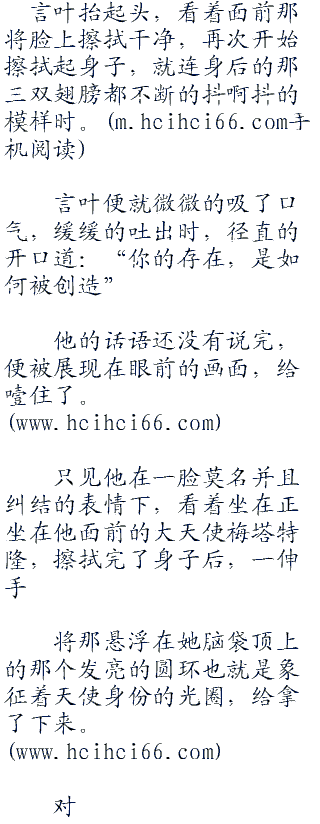 言叶抬起头，看着面前那
将脸上擦拭干净，再次开始
擦拭起身子，就连身后的那
三双翅膀都不断的抖啊抖的
模样时。(m.hcihci66.com手
机阅读)
言叶便就微微的吸了口
气，缓缓的吐出时，径直的
开口道：“你的存在，是如
何被创造”
他的话语还没有说完，
便被展现在眼前的画面，给
噎住了。
(www.hcihci66.com)
只见他在一脸莫名并且
纠结的表情下，看着坐在正
坐在他面前的大天使梅塔特
隆，擦拭完了身子后，一伸
手
将那悬浮在她脑袋顶上
的那个发亮的圆环也就是象
征着天使身份的光圈，给拿
了下来。
(www.hcihci66.com)
对